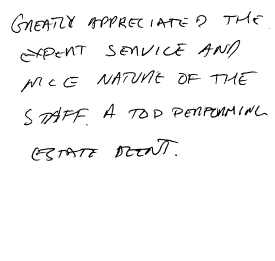 GREATLY APPRECIATED THE
EXPERT SERVICE AND
NICE NATURE OF THE
STAFF. A TOP PERFORMING
ESTATE AGENT.